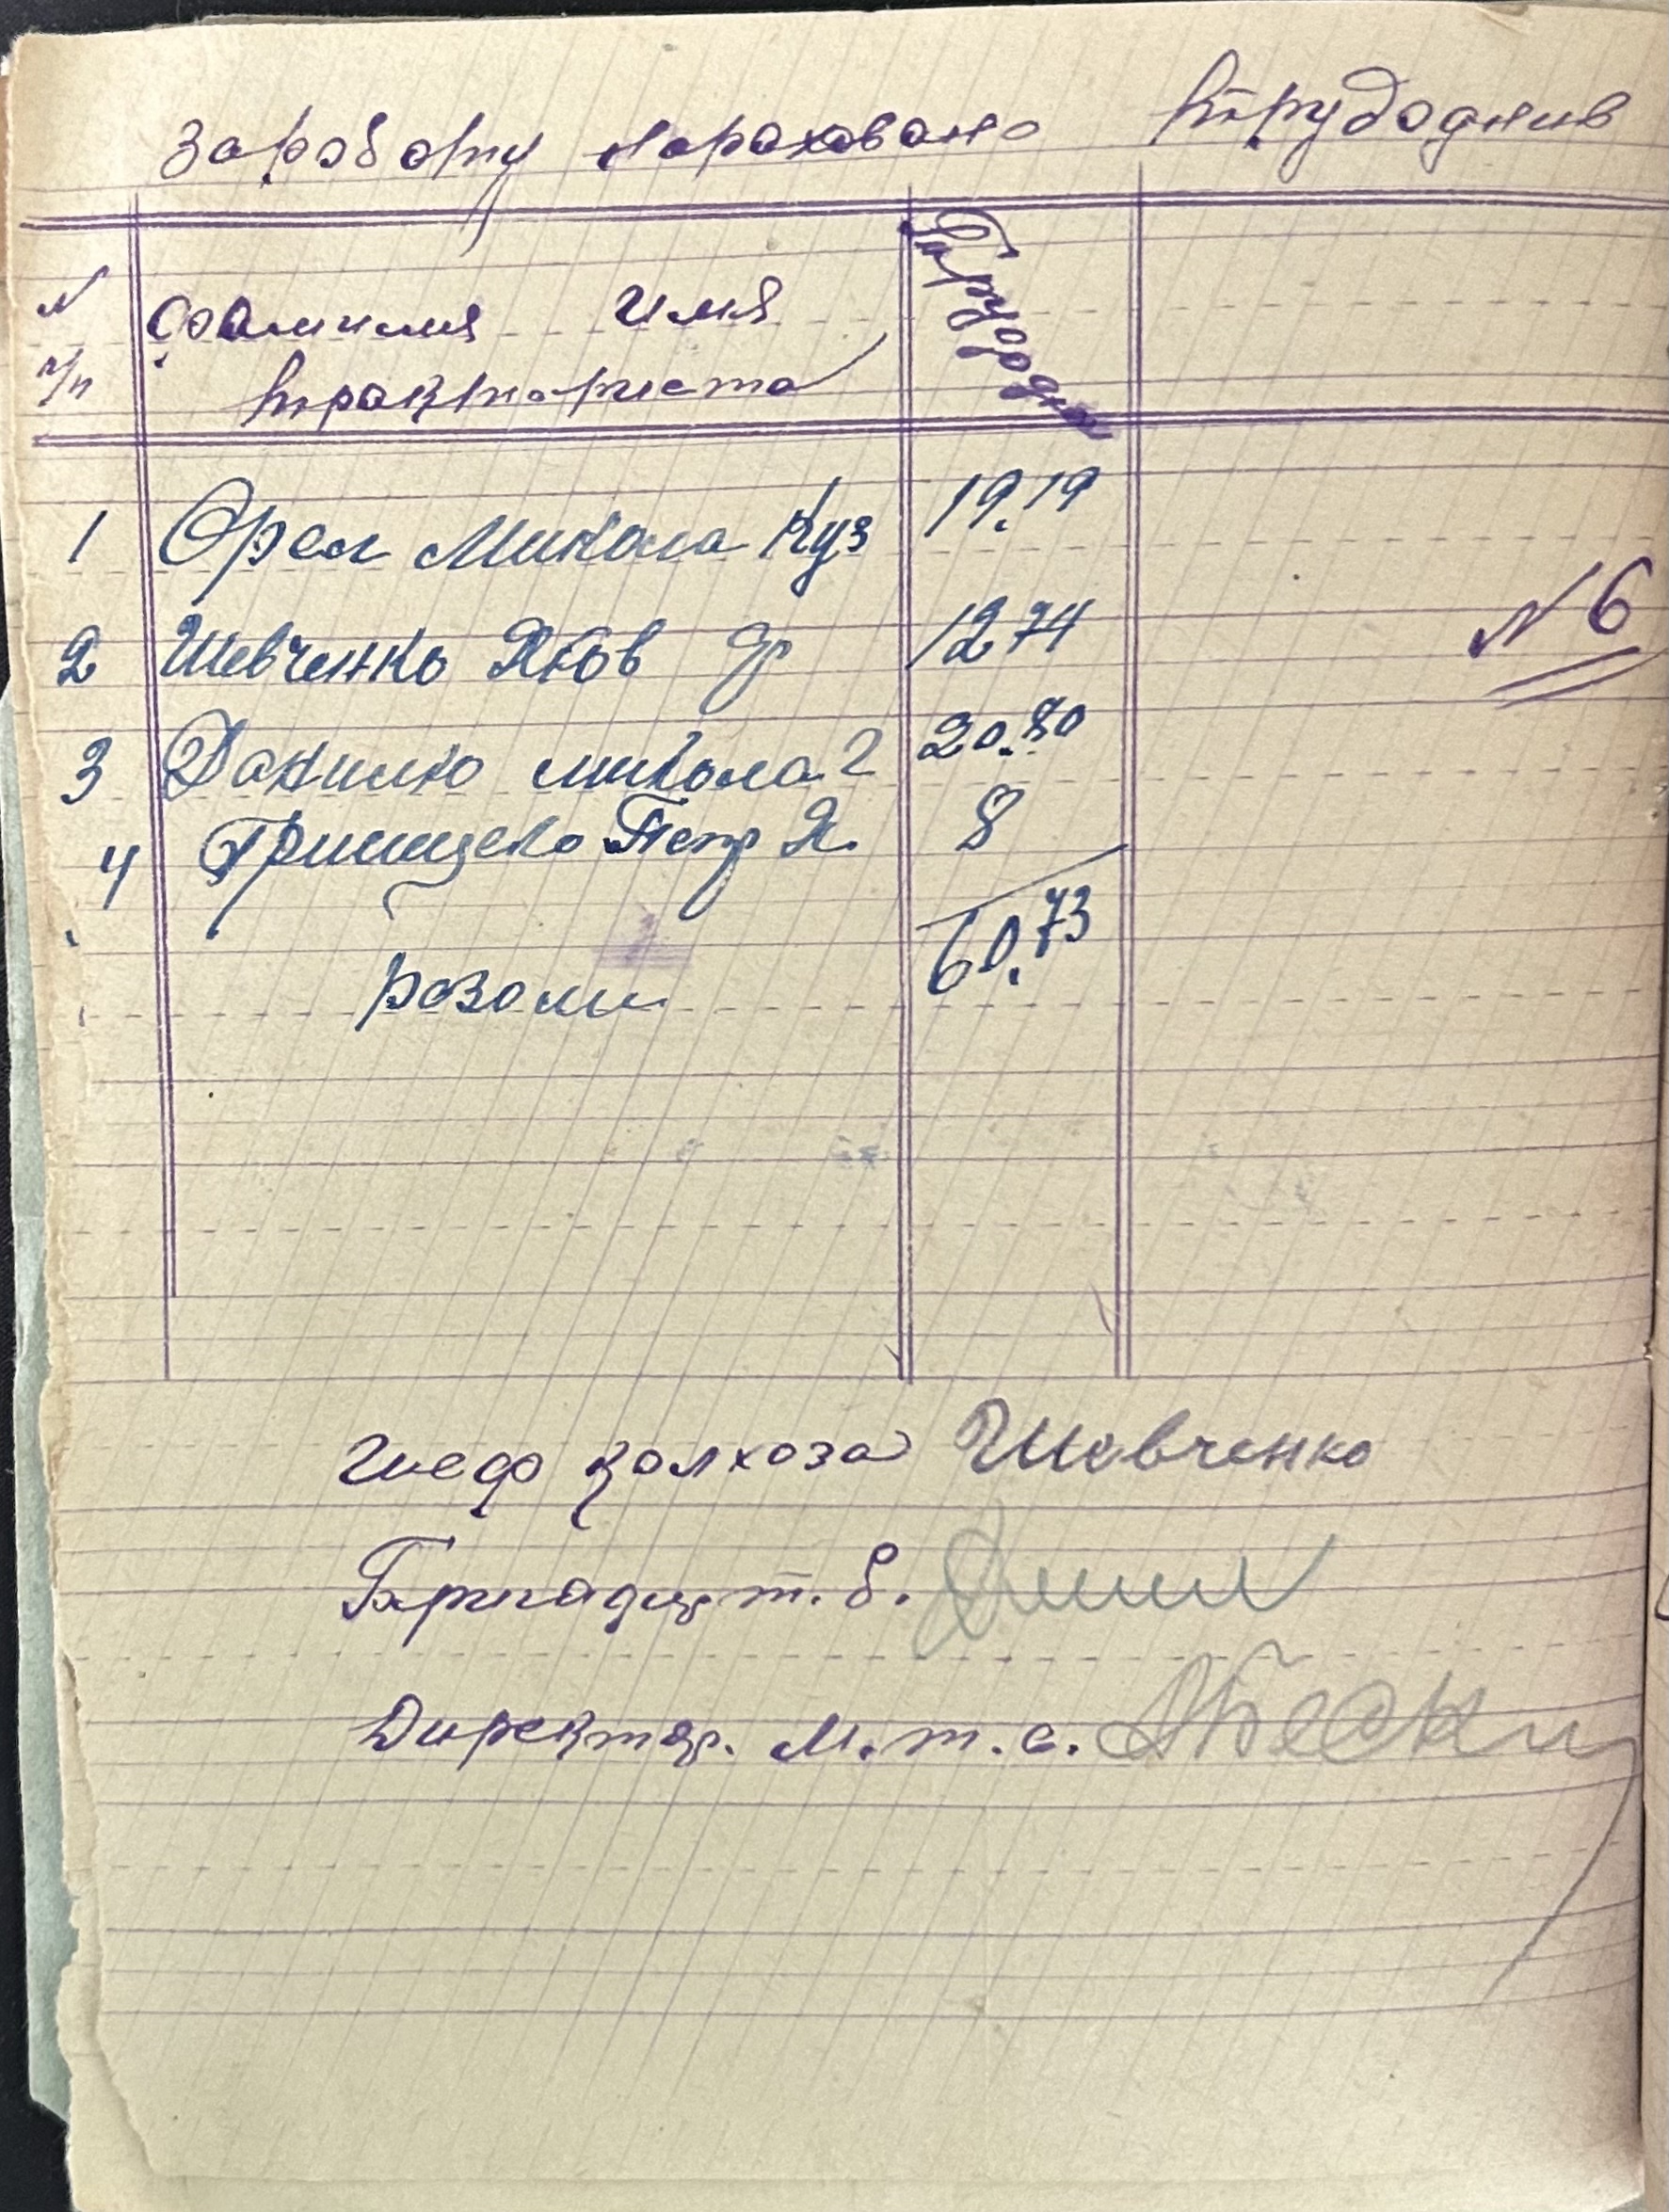 За роботу нараховано трудоднив
N п/п Фамилия Имя тракториста Трудодни
1 Орел Микола Куз 19.19
2 Шевченко Яков Гр 12 74
3 Данилко микола Г 20.80
4 Грищенко Петр Я. 8
разом 60.73
N 6
Шеф колхоза Шевченко
Бригадир т. б.
Директор. М. т. с.